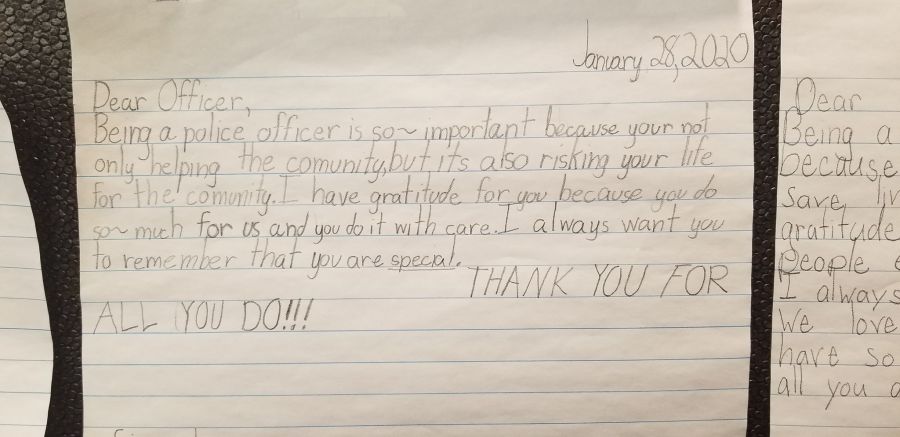 January 28, 2020
Dear Officer,
Being a police officer is so~ important because your not
only helping the comunity, but it's also risking your life
for the comunity. I have gratitude for you because you do
so~ much for us and you do it with care. I always want you
to remember that you are special.
THANK YOU FOR
ALL YOU DO!!!
Dear
Being a
because
save
gratitude
people
I always
We love
have so
all you